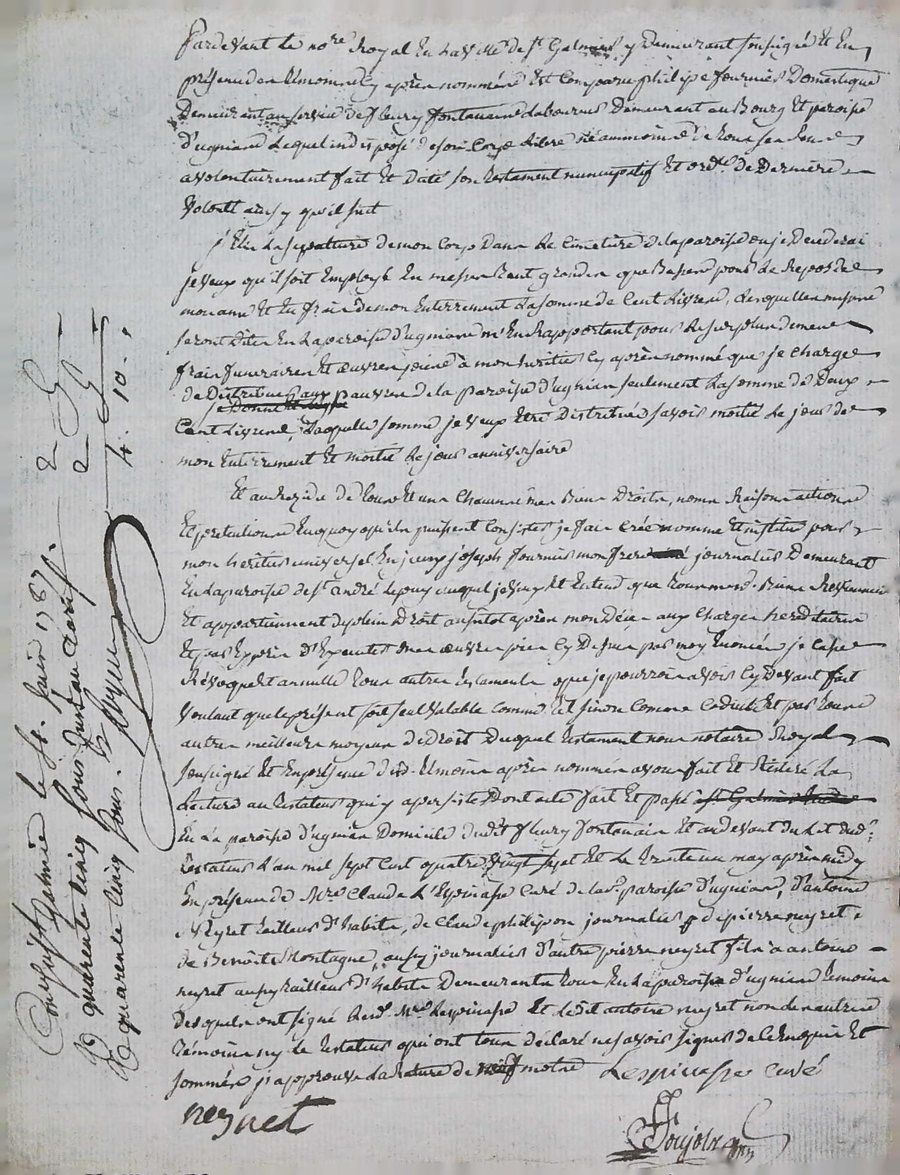 Pardevant le nore Royal En la ville de st Galmier y Demeurant soussigné et En
présence des témoins cy après nommés Est Comparu philipe fournier Domestique
Demeurant au service de fleury fontanain Laboureur Demeurant au Bourg et paroisse
d'ugniard Lequel indisposé de son Corps Libre néammoins de tous ses sens
a volontairement fait et dicté son testament nuncupatif et ordce de Derniere
volonté ainsy qu'il suit
j'Elis La sepulture de mon Corps Dans Le Cimetiere de la paroisse ou je Decederai
je veux qu'il soit Employé En messes tant grandes que Basses pour Le Repos de
mon ame et En frais de mon Enterrement La somme de Cent Livres, Lesquelles messes
seront Dites En La paroisse d'ugniard m'En Rapportant pour Le surplus de mes
frais funeraires et œuvres pies à mon heritier Cy après nommé que je charge
de Distribuer aux pauvres de la paroisse d'ugniard seulement La somme de Deux
Cent Livres, Laquelle somme je veux Etre Distribuée savoir moitié Le jour de
mon Enterrement et moitié Le jour anniversaire
Et au Residu de tous et uns Chacuns mes Biens Droits, noms Raisons actions
Et pretentions En quoy qu'ils puissent Consister je fais créé nomme et institue pour
mon heritier universel jean joseph fournier mon frere journalier Demeurant
En La paroisse de st andré Le puy auquel je veux et Entend que tous mesd. Biens
Et appartiennent de plein Droit aussitot après mon Décès aux Charges hereditaires
Et par Exprès d'Executer mes œuvres pies Cy Dessus par moy Enoncées je Casse
Révoque et annulle tous autres testaments que je pourrois avoir Cy Devant fait
voulant que le présent soit seul valable comme tel sinon comme Codicile Et par tous
autres meilleurs moyens de Droit Duquel testament nous notaire Royal
soussigné Et En présence desd. témoins après nommés avons fait et Réiteré La
Lecture au testateur qui y a persisté Dont acte fait Et passé
En La paroisse d'ugniard Domicile dudit fleury fontanain Et au devant du Lit dud.
testateur L'an mil sept Cent quatre vingt sept Et Le trente un may après midy
En présence de Mre Claude L'Espinasse Curé de lad. paroisse d'ugniard, d'antoine
Neyret tailleur d'habits, de Claude philipon journalier de pierre neyret
de Benoit Montagne, aussy journaliers d'autre pierre neyret fils a antoine
neyret aussy tailleur d'habits Demeurants tous En La paroisse d'ugniard temoins
Desquels ont signé Led. Mre Lespinasse Et Ledit antoine neyret non les autres
témoins ny le testateur qui ont tous déclaré ne savoir signer de Ce Enquis Et
sommés j'approuve La Rature de neuf mots
Lespinasse curé
neyret
Poujols
Con à St Galmier le 16. juin 1787.
R quarente cinq sous
R quarente cinq sous.
2
2
4 10